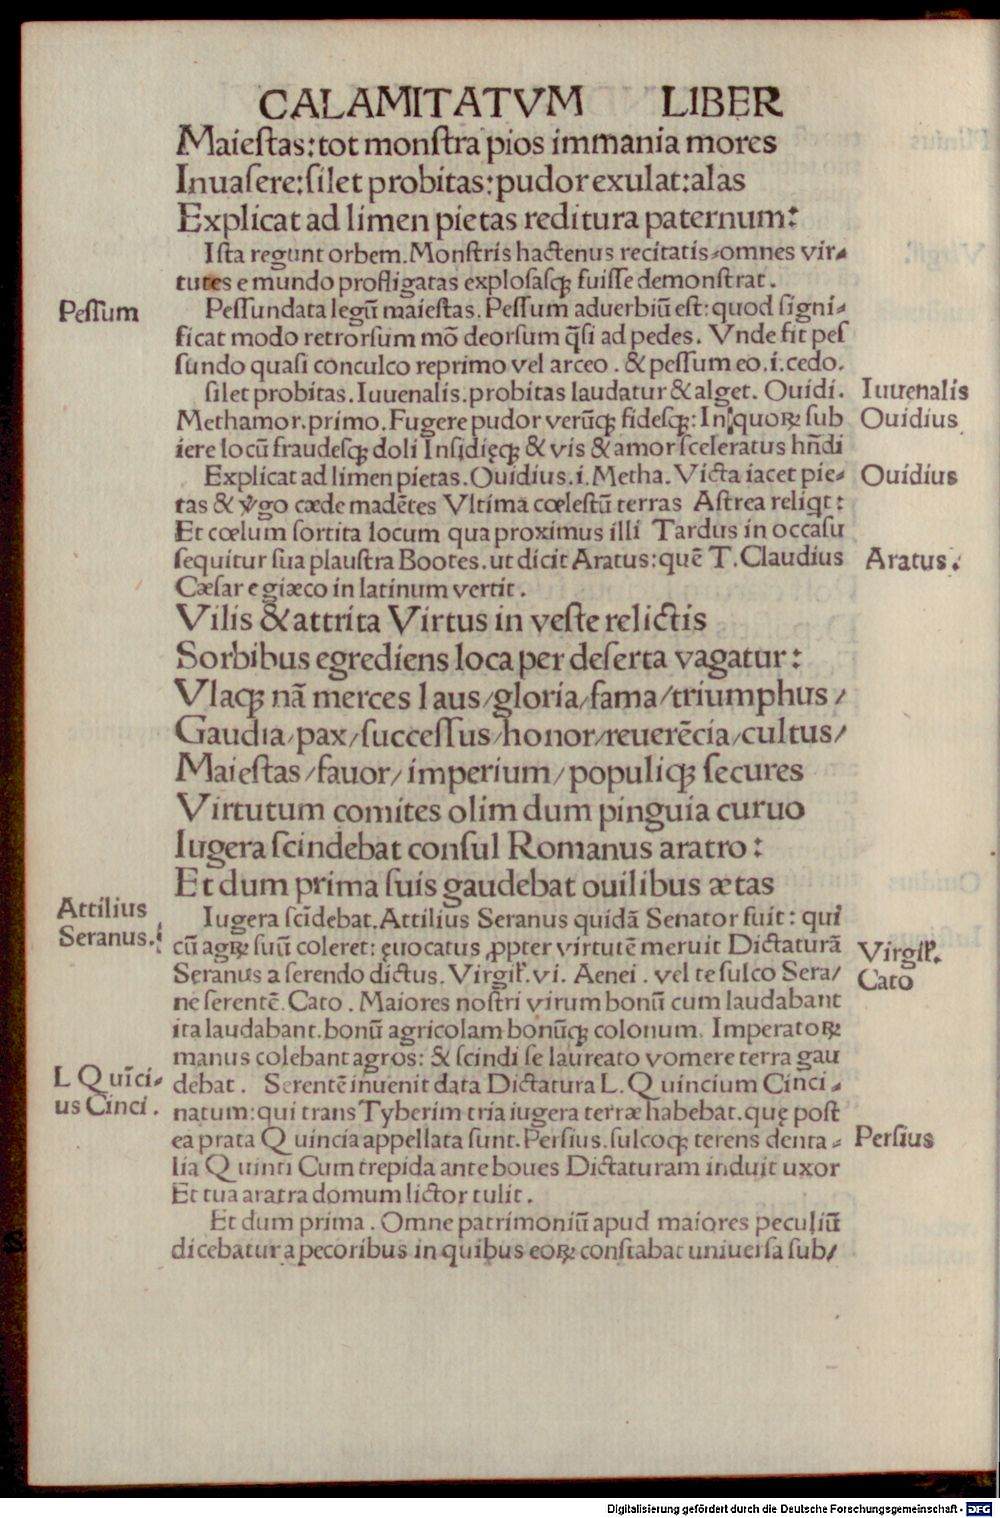 CALAMITATVM LIBER
Maieſtas: tot monſtra pios immania mores
Inuaſere: ſilet probitas: pudor exulat: alas
Explicat ad limen pietas reditura paternum:
Iſta regunt orbem. Monſtris hactenus recitatis, omnes vir-
tutes e mundo profligatas exploſaſqꝫ fuiſſe demonſtrat.
Peſſum
Peſſundata legū maieſtas. Peſſum aduerbiū eſt: quod ſigni-
ficat modo retrorſum mō deorſum q̄ſi ad pedes. Vnde fit peſ
ſundo quaſi conculco reprimo vel arceo. & peſſum eo .i. cedo.
ſilet probitas. Iuuenalis. probitas laudatur & alget. Ouidi. Iuuenalis
Methamor. primo. Fugere pudor verūqꝫ fideſqꝫ: In quoꝝ ſub Ouidius
iere locū fraudeſqꝫ doli Inſidięqꝫ & vis & amor ſceleratus hn̄di
Explicat ad limen pietas. Ouidius .i. Metha. Victa iacet pie- Ouidius
tas & v̓go cæde madētes Vltima cœleſtū terras Aſtrea reliqt:
Et cœlum ſortita locum qua proximus illi Tardus in occaſu
ſequitur ſua plauſtra Bootes. ut dicit Aratus: quē T. Claudius Aratus.
Cæſar e giæco in latinum vertit.
Vilis & attrita Virtus in veſte relictis
Sorbibus egrediens loca per deſerta vagatur:
Vlaqꝫ nā merces laus/gloria/fama/triumphus/
Gaudia/pax/ſucceſſus/honor/reuerēcia/cultus/
Maieſtas/fauor/imperium/populiqꝫ ſecures
Virtutum comites olim dum pinguia curuo
Iugera ſcindebat conſul Romanus aratro:
Et dum prima ſuis gaudebat ouilibus ætas
Attilius
Seranus.
Iugera ſcīdebat. Attilius Seranus quidā Senator fuit: qui
cū agꝝ ſuū coleret: ęuocatus ꝓpter virtutē meruit Dictaturā Virgiľ.
Seranus a ſerendo dictus. Virgiľ. vi. Aenei. vel te ſulco Sera/ Cato
ne ſerentē. Cato. Maiores noſtri virum bonū cum laudabant
ita laudabant. bonū agricolam bonūqꝫ colonum. Imperatoꝝ
manus colebant agros: & ſcindi ſe laureato vomere terra gau
L Quīci-
us Cinci.
debat. Serentē inuenit data Dictatura L. Quincium Cinci-
natum: qui trans Tyberim tria iugera terræ habebat. quę poſt
ea prata Quincia appellata ſunt. Perſius. ſulcoqꝫ terens denta- Perſius
lia Quinti Cum trepida ante boues Dictaturam induit uxor
Et tua aratra domum lictor tulit.
Et dum prima. Omne patrimoniū apud maiores peculiū
dicebatur a pecoribus in quibus eoꝝ conſtabat uniuerſa ſub/
Digitalisierung gefördert durch die Deutsche Forschungsgemeinschaft - DFG